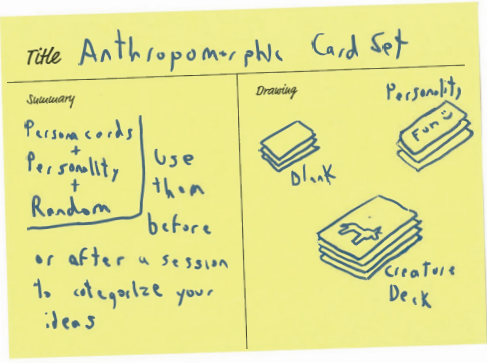 Title Anthropomorphic Card Set
Summary
Persona cards
+
Personality
+
Random
Use
them
before
or after a session
to categorize your
ideas
Drawing
Personality
Fun
Blank
Creature
Deck